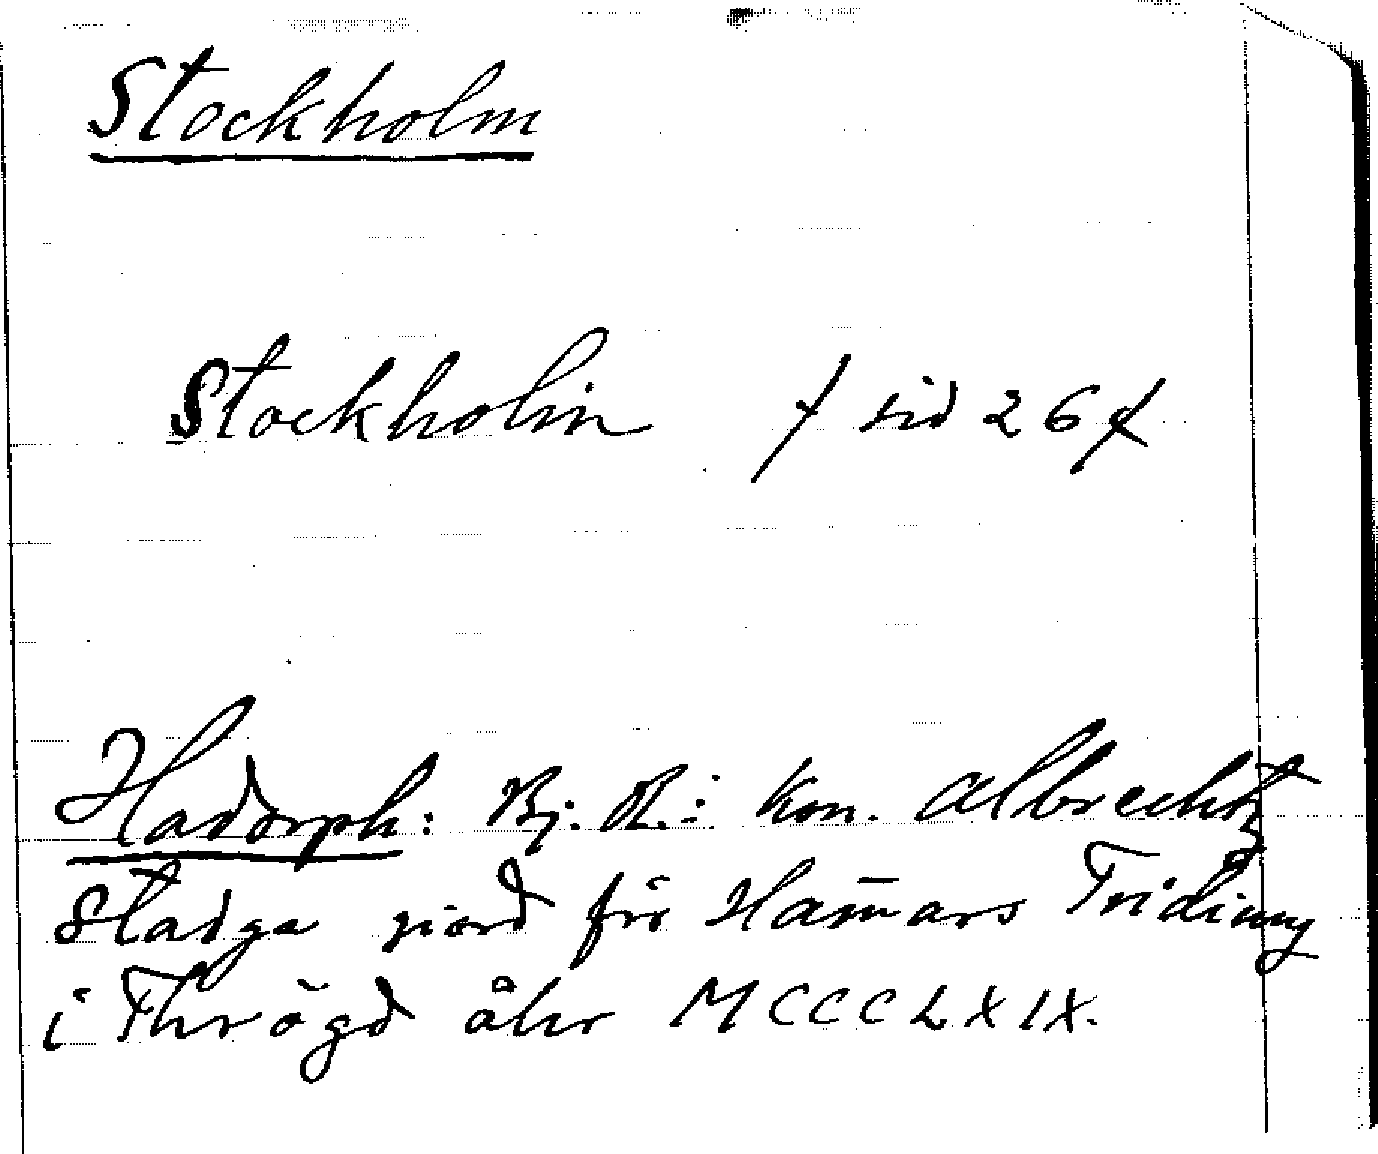 Stockholm
Stockholm / sid 26 /
Hadorph: Bj. R.: Kon. Albrechtz
Stadga giord för Ham̄ars Tridiung
i Thrögd åhr MCCCLXIX.